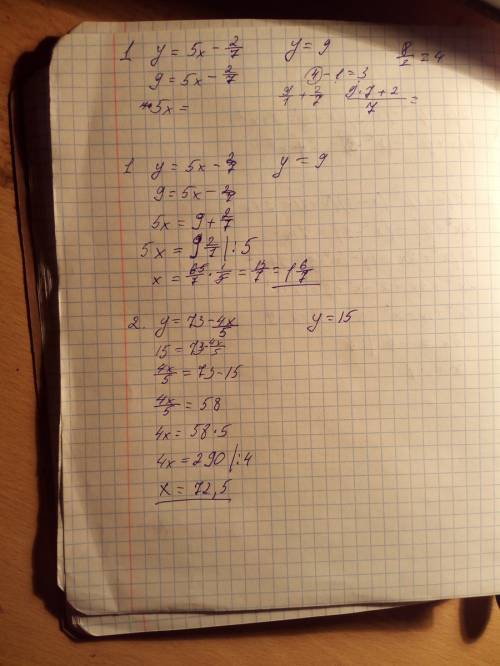 1 y = 5x - 2/7 y = 9 8/2 = 4
9 = 5x - 2/7 4 - 1 = 3
5x = 9/1 + 2/7 9·7+2/7 =
1 y = 5x - 2/7 y = 9
9 = 5x - 2/7
5x = 9 + 2/7
5x = 9 2/7 |:5
x = 65/7 · 1/5 = 13/7 = 1 6/7
2. y = 73 - 4x/5 y = 15
15 = 73 - 4x/5
4x/5 = 73 - 15
4x/5 = 58
4x = 58·5
4x = 290 |:4
x = 72,5